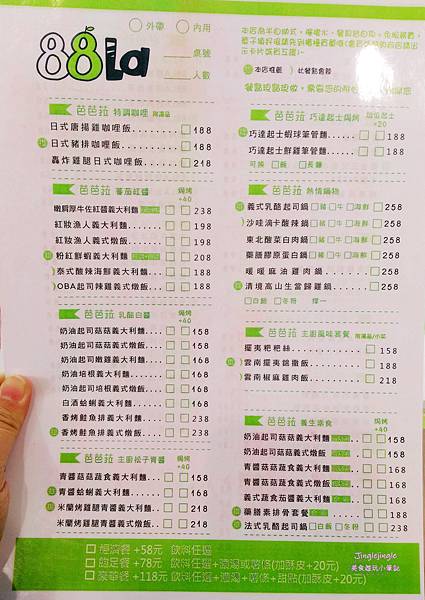 88La
外帶 內用
桌號
人數
芭芭菈 特調咖哩 附湯品
日式唐揚雞咖哩飯 188
日式豬排咖哩飯 188
轟炸雞腿日式咖哩飯 218
芭芭菈 蕃茄紅醬 焗烤+40
嫩肩厚牛佐紅醬義大利麵 238
紅妝漁人義大利麵 198
紅妝漁人義式燉飯 198
粉紅鮮蝦義大利麵 208
泰式酸辣海鮮義大利麵 188
OBA起司辣雞義式燉飯 188
芭芭菈 乳酪白醬 焗烤+40
奶油起司菇菇義大利麵 158
奶油起司菇菇義式燉飯 158
奶油起司嫩雞義大利麵 158
奶油培根義大利麵 158
奶油起司培根義式燉飯 158
白酒蛤蜊義大利麵 168
香烤鮭魚排義大利麵 238
香烤鮭魚排義式燉飯 238
芭芭菈 主廚松子青醬 焗烤+40
青醬菇菇蔬食義大利麵 158
青醬蛤蜊義大利麵 168
米蘭烤雞腿青醬義大利麵 218
米蘭烤雞腿青醬義式燉飯 208
本店推薦 此餐點會辣
芭芭菈 巧達起士焗烤 加位起士+20
巧達起士蝦球筆管麵 188
巧達起士鮮雞筆管麵 188
可換 飯 長麵
芭芭菈 熱情鍋物
義式乳酪起司鍋 豬 牛 海鮮 258
沙哇滴卡酸辣鍋 豬 牛 海鮮 258
東北酸菜白肉鍋 豬 牛 海鮮 258
藥膳膠原蛋白鍋 豬 牛 海鮮 258
暖暖麻油雞肉鍋 258
清境高山生當歸雞鍋 258
白飯 冬粉 擇一
芭芭菈 主廚風味套餐 附湯品/小菜
擺夷粑粑絲 158
雲南擺夷錦撒飯 188
雲南椒麻雞肉飯 218
芭芭菈 養生素食 焗烤+40
奶油起司菇菇義大利麵 158
奶油起司菇菇義式燉飯 158
青醬菇菇蔬食義大利麵 168
青醬菇菇蔬食義式燉飯 168
義式蔬食茄醬義大利麵 168
藥膳素排骨套餐 188
法式乳酪起司鍋 白飯 冬粉 238
經濟餐 +58元 飲料任選
飽足餐 +78元 飲料任選+濃湯或薯條(加酥皮+20元)
豪華餐 +118元 飲料任選+濃湯、薯條+甜點(加酥皮+20元)
Jinglejingle
美食遊玩小筆記